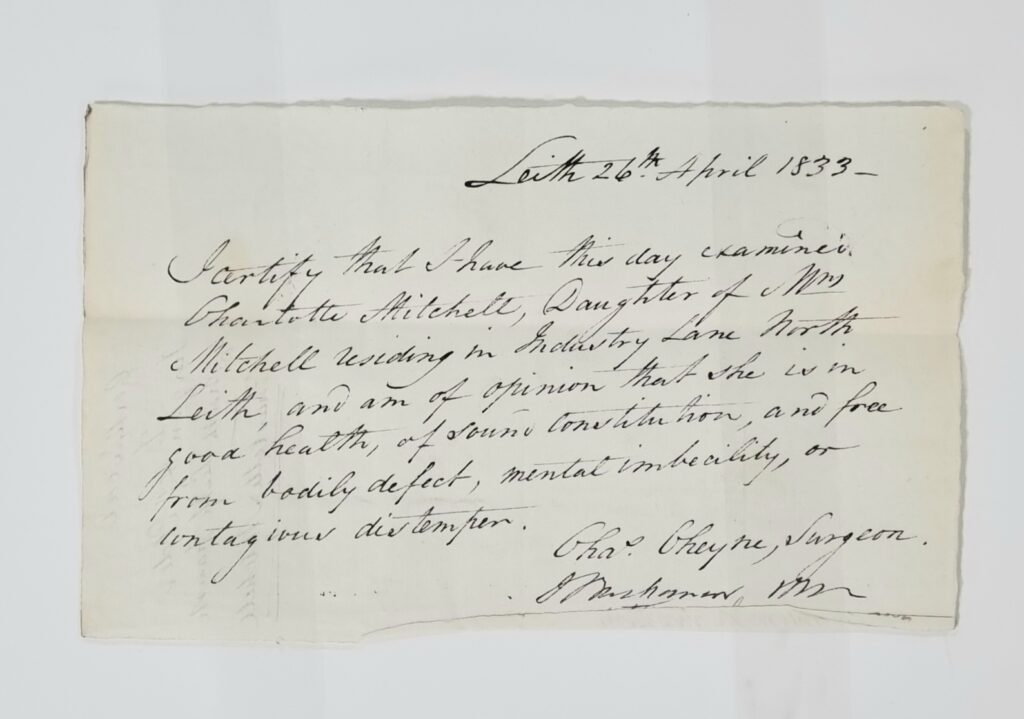 Leith 26th. April 1833 –
I certify that I have this day examined
Charlotte Mitchell, Daughter of Mrs
Mitchell residing in Industry Lane North
Leith, and am of opinion that she is in
good health, of sound constitution, and free
from bodily defect, mental imbecility, or
contagious distemper.
Chas. Cheyne, Surgeon.